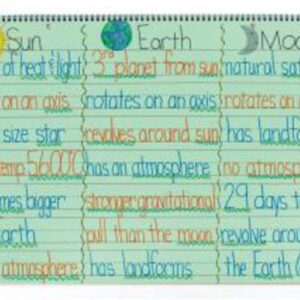 Sun Earth Moo
of heat & light 3rd planet from sun natural sat
on an axis rotates on an axis rotates on
size star revolves around sun has landfo
emp. 5600C has an atmosphere no atmosp
mes bigger stronger gravitational 29 days t
arth pull than the moon revolve aroun
atmosphere has landforms the Earth (